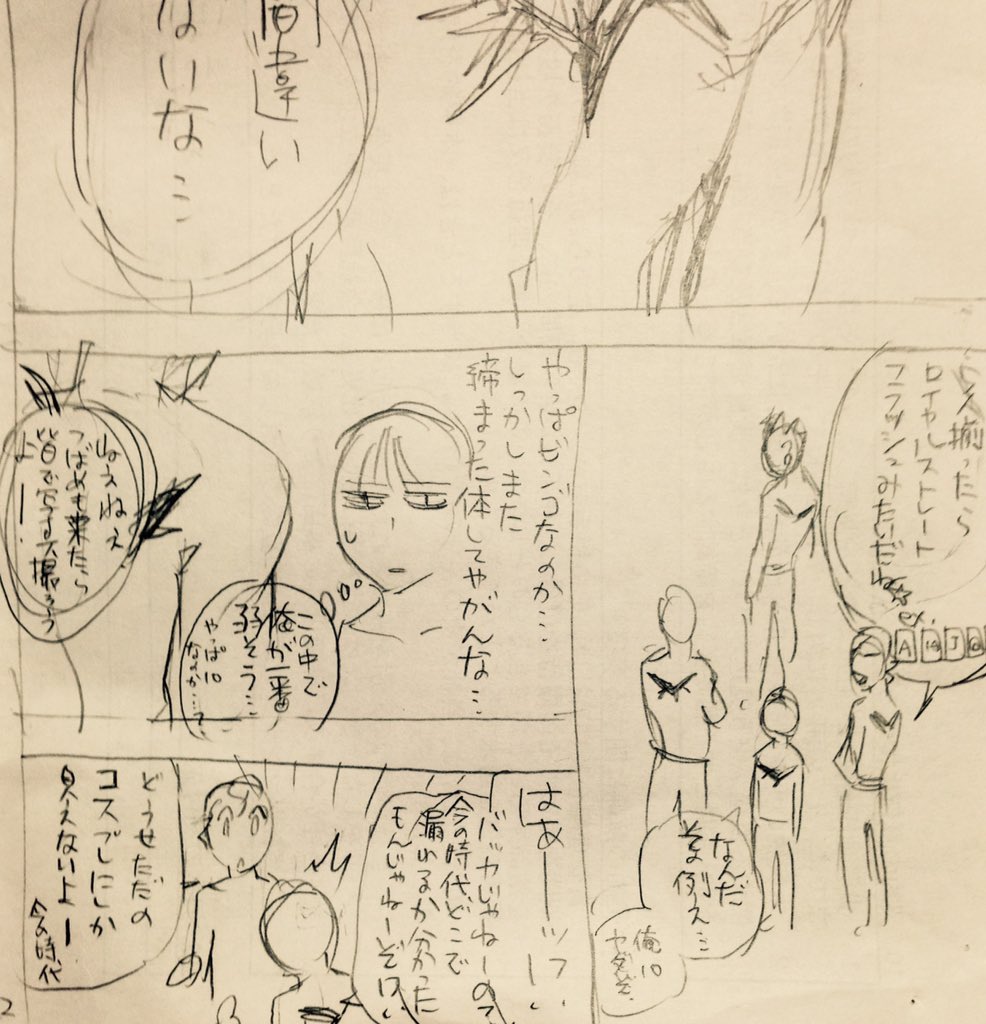 間違い
ないな…
揃ったら
ロイヤルストレート
フラッシュみたいだね
ex.
A
10
J
Q
なんだ
その例え…
俺10
ヤダぞ
やっぱビンゴなのか…
しっかしまた
締まった体してやがんな…
この中で
俺が一番
弱そう…
やっぱ10
なのか…？
ねえねぇ
つばめも来たら
皆で写真撮ろう
よー！
はあーーッ!?
バッカじゃねーの?
今の時代どこで
漏れるか分かった
もんじゃねーぞ
どうせただの
コスプレにしか
見えないよー
今の時代
2